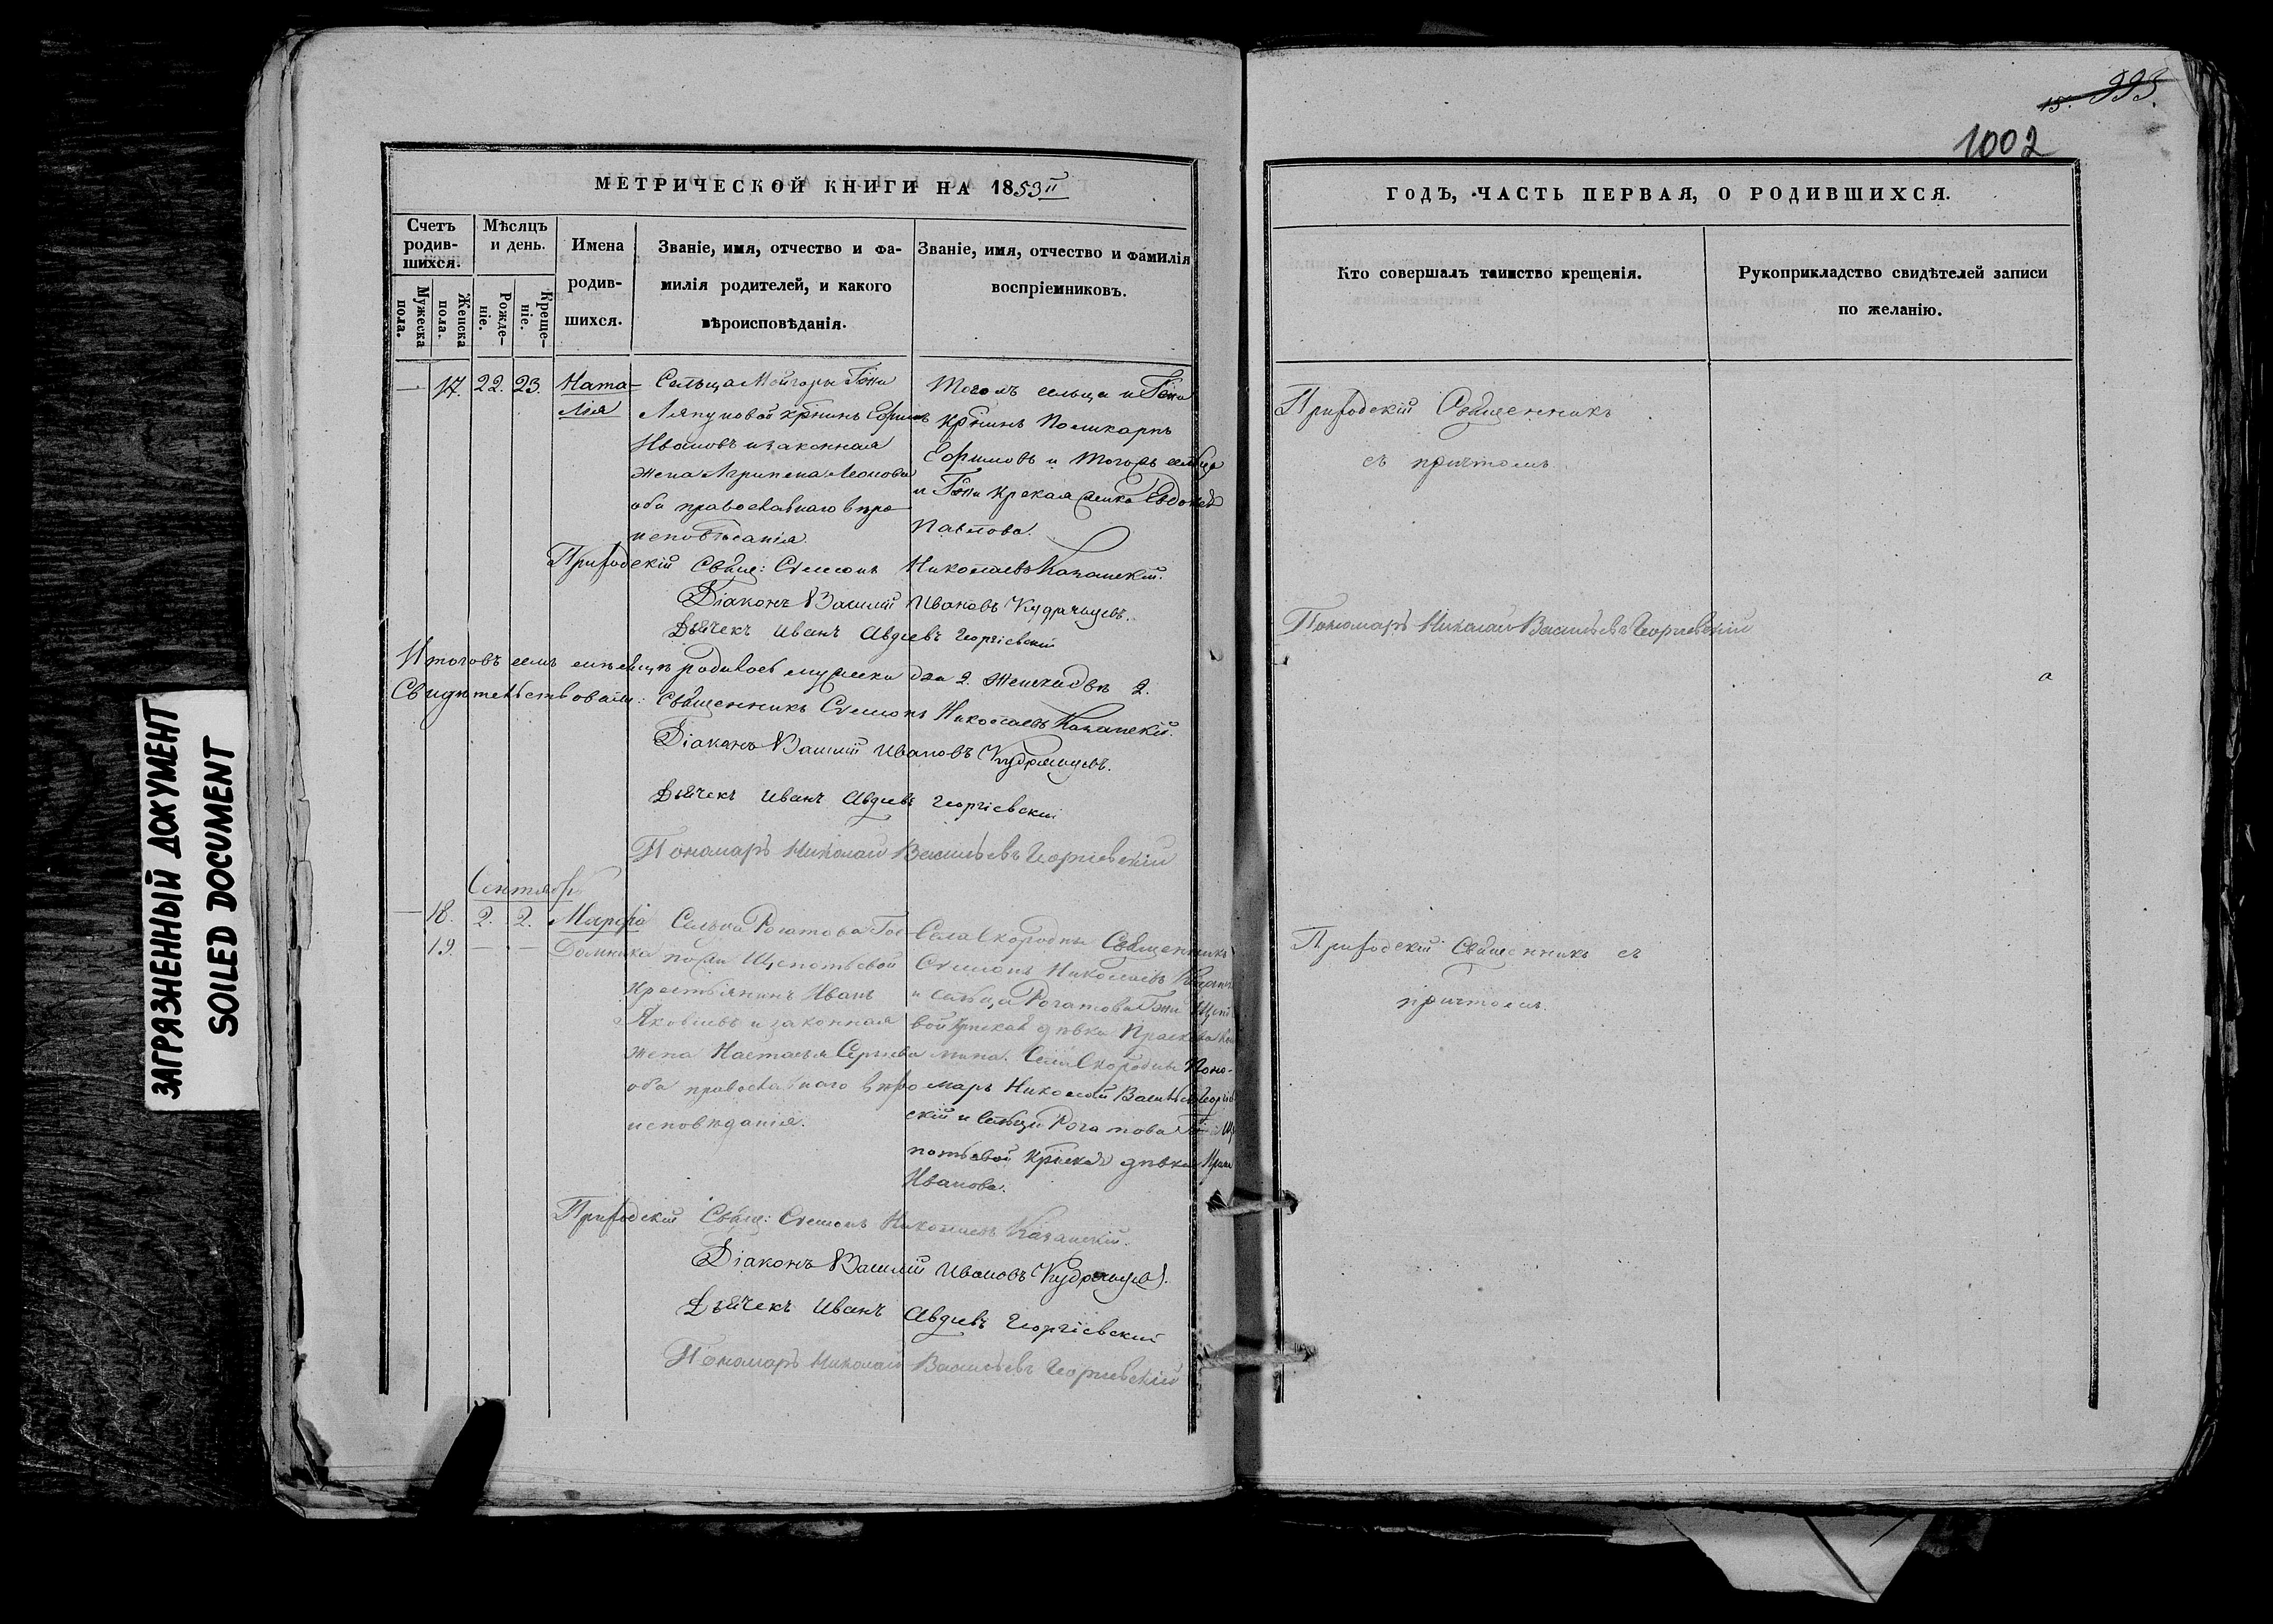 ЗАГРЯЗНЕННЫЙ ДОКУМЕНТ
SOILED DOCUMENT
МЕТРИЧЕСКОЙ КНИГИ НА 1853
Счетъ родив-шихся.
Мужеска пола.
Женска пола.
Мѣсяцъ и день.
Рожде-ніе.
Креще-ніе.
Имена
родив-
шихся.
Званіе, имя, отчество и фа-
милія родителей, и какого
вѣроисповѣданія.
Званіе, имя, отчество и фамилія
воспріемниковъ.
— 17. 22. 23. Ната=
лія
Сельца Гжи
Ляпуновой крнинъ
Ивановъ и законная
жена Агрипена Леонова
оба православнаго вѣро
исповѣданія.
Тогожъ сельца и Гжи
крнинъ Поликарпъ
Ефимовъ и тогожъ сельца
и Гжи
Павлова.
Приходскій Свящ: Стефанъ Николаевъ Казанскій.
Діаконъ Василій Ивановъ Кудрявцевъ.
Дьячекъ Иванъ Авдіевъ Георгіевскій
родилось мужеска два 2. женска двѣ 2.
Свидѣтельствовали: Священникъ Стефанъ Николаевъ Казанскій.
Діаконъ Василій Ивановъ Кудрявцевъ.
Дьячекъ Иванъ Авдіевъ Георгіевскій
Пономарь Николай Васильевъ Георгіевскій
Сентябрь
— 18. 2. 2. Марфа
19. — — Домника
Сельца Рогатова Гос-
пожи Щепотьевой
Крестьянинъ Иванъ
Яковлевъ и законная
жена Настасья Сергіева
оба православнаго вѣро
исповѣданія.
Села Скородны Священникъ
Стефанъ Николаевъ
и сельца Рогатова Гжи
вой дѣвка
Села Скородны Поно-
марь Николай Васильевъ Георгіев
скій и сельца Рогатова
потьевой дѣвка
Иванова.
Приходскій Свящ: Стефанъ Николаевъ Казанскій.
Діаконъ Василій Ивановъ Кудрявцевъ.
Дьячекъ Иванъ Авдіевъ Георгіевскій
Пономарь Николай Васильевъ Георгіевскій
15. 993.
1002
ГОДЪ, ЧАСТЬ ПЕРВАЯ, О РОДИВШИХСЯ.
Кто совершалъ таинство крещенія.
Рукоприкладство свидѣтелей записи
по желанію.
Приходскій Священникъ
съ причтомъ.
Пономарь Николай Васильевъ Георгіевскій
Приходскій Священникъ съ
причтомъ.